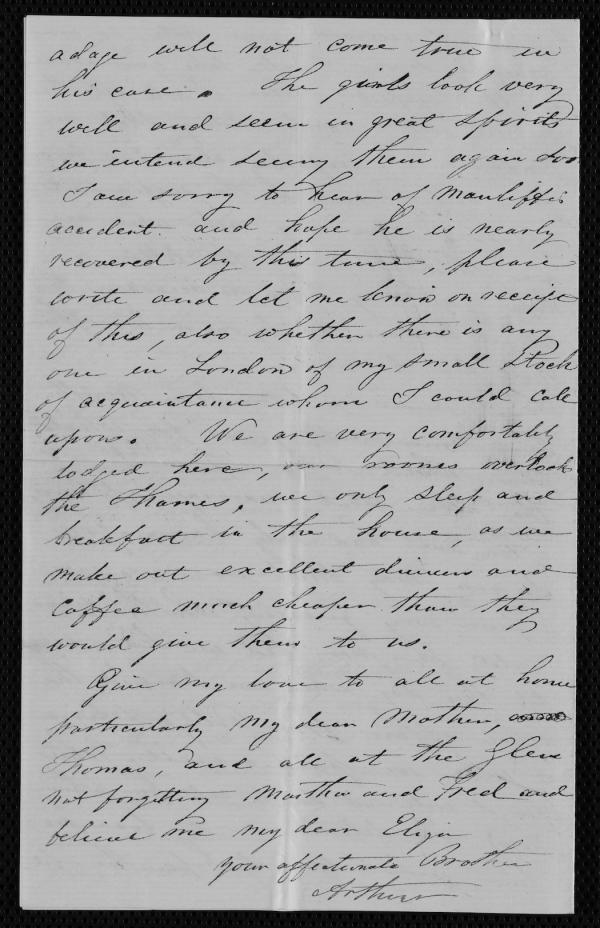 adage will not come true in
his case. The girls look very
well and seem in great spirits
we intend seeing them again soon
I am sorry to hear of Manliffe's
accident. and hope he is nearly
recovered by this time, please
write and let me know on receipt
of this, also whether there is any
one in London of my small stock
of acquaintance whom I could call
upon. We are very comfortably
lodged here, our rooms overlook
the Thames, we only sleep and
breakfast in the house, as we
make out excellent dinners and
coffee much cheaper than they
would give them to us.
Give my love to all at home
particularly my dear Mother,
Thomas, and all at the Glen
not forgetting Martha and Fred and
believe me my dear Eliza
your affectionate Brother
Arthur